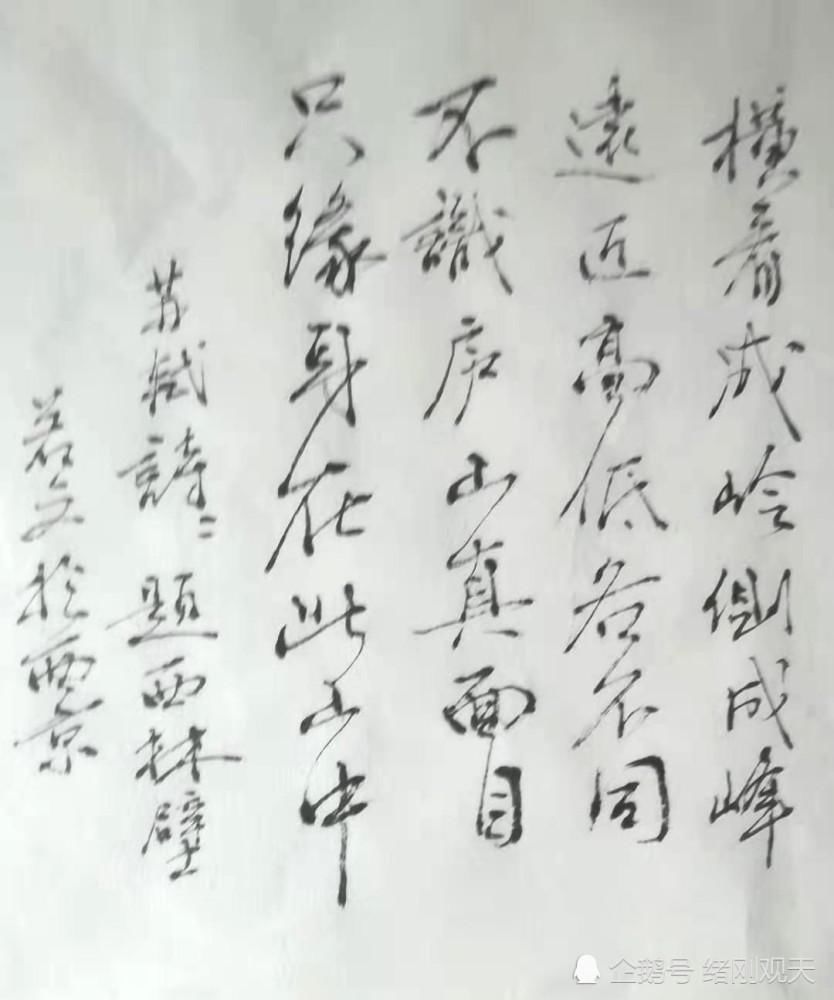 橫看成岭側成峰
遠近高低各不同
不識庐山真面目
只缘身在此山中
苏軾詩：題西林壁
君文於西京
企鹅号 绪刚观天